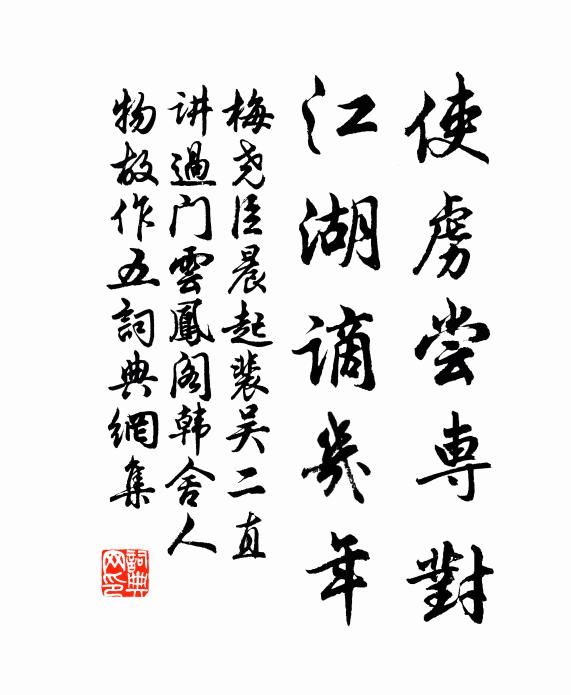 使虜嘗專對
江湖謫幾年
梅尧臣晨起裴吴二直
讲過门雲鳳阁韩舍人
物故作五詞典網集
詞典网印